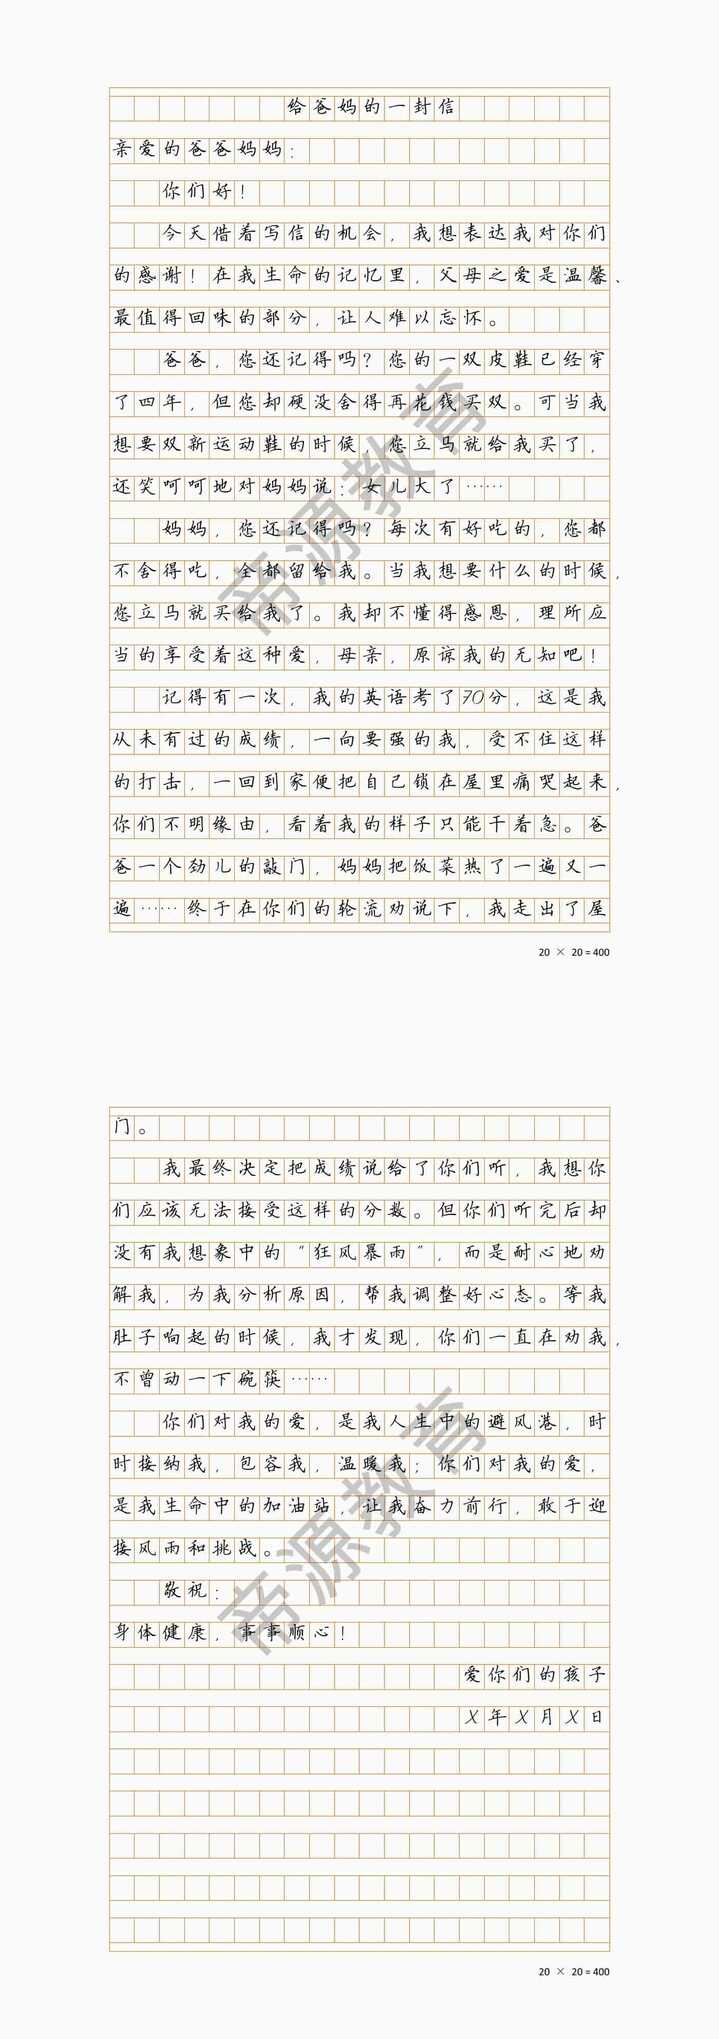 给爸妈的一封信
亲爱的爸爸妈妈：
你们好！
今天借着写信的机会，我想表达我对你们
的感谢！在我生命的记忆里，父母之爱是温馨、
最值得回味的部分，让人难以忘怀。
爸爸，您还记得吗？您的一双皮鞋已经穿
了四年，但您却硬没舍得再花钱买双。可当我
想要双新运动鞋的时候，您立马就给我买了，
还笑呵呵地对妈妈说：女儿大了……
妈妈，您还记得吗？每次有好吃的，您都
不舍得吃，全都留给我。当我想要什么的时候，
您立马就买给我了。我却不懂得感恩，理所应
当的享受着这种爱，母亲，原谅我的无知吧！
记得有一次，我的英语考了70分，这是我
从未有过的成绩，一向要强的我，受不住这样
的打击，一回到家便把自己锁在屋里痛哭起来，
你们不明缘由，看着我的样子只能干着急。爸
爸一个劲儿的敲门，妈妈把饭菜热了一遍又一
遍……终于在你们的轮流劝说下，我走出了屋
20 × 20 = 400
门。
我最终决定把成绩说给了你们听，我想你
们应该无法接受这样的分数。但你们听完后却
没有我想象中的“狂风暴雨”，而是耐心地劝
解我，为我分析原因，帮我调整好心态。等我
肚子响起的时候，我才发现，你们一直在劝我，
不曾动一下碗筷……
你们对我的爱，是我人生中的避风港，时
时接纳我，包容我，温暖我；你们对我的爱，
是我生命中的加油站，让我奋力前行，敢于迎
接风雨和挑战。
敬祝：
身体健康，事事顺心！
爱你们的孩子
X年X月X日
20 × 20 = 400
帝源教育
帝源教育